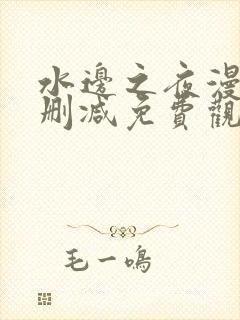 水邊之夜漫
刪減免費觀
毛一鳴